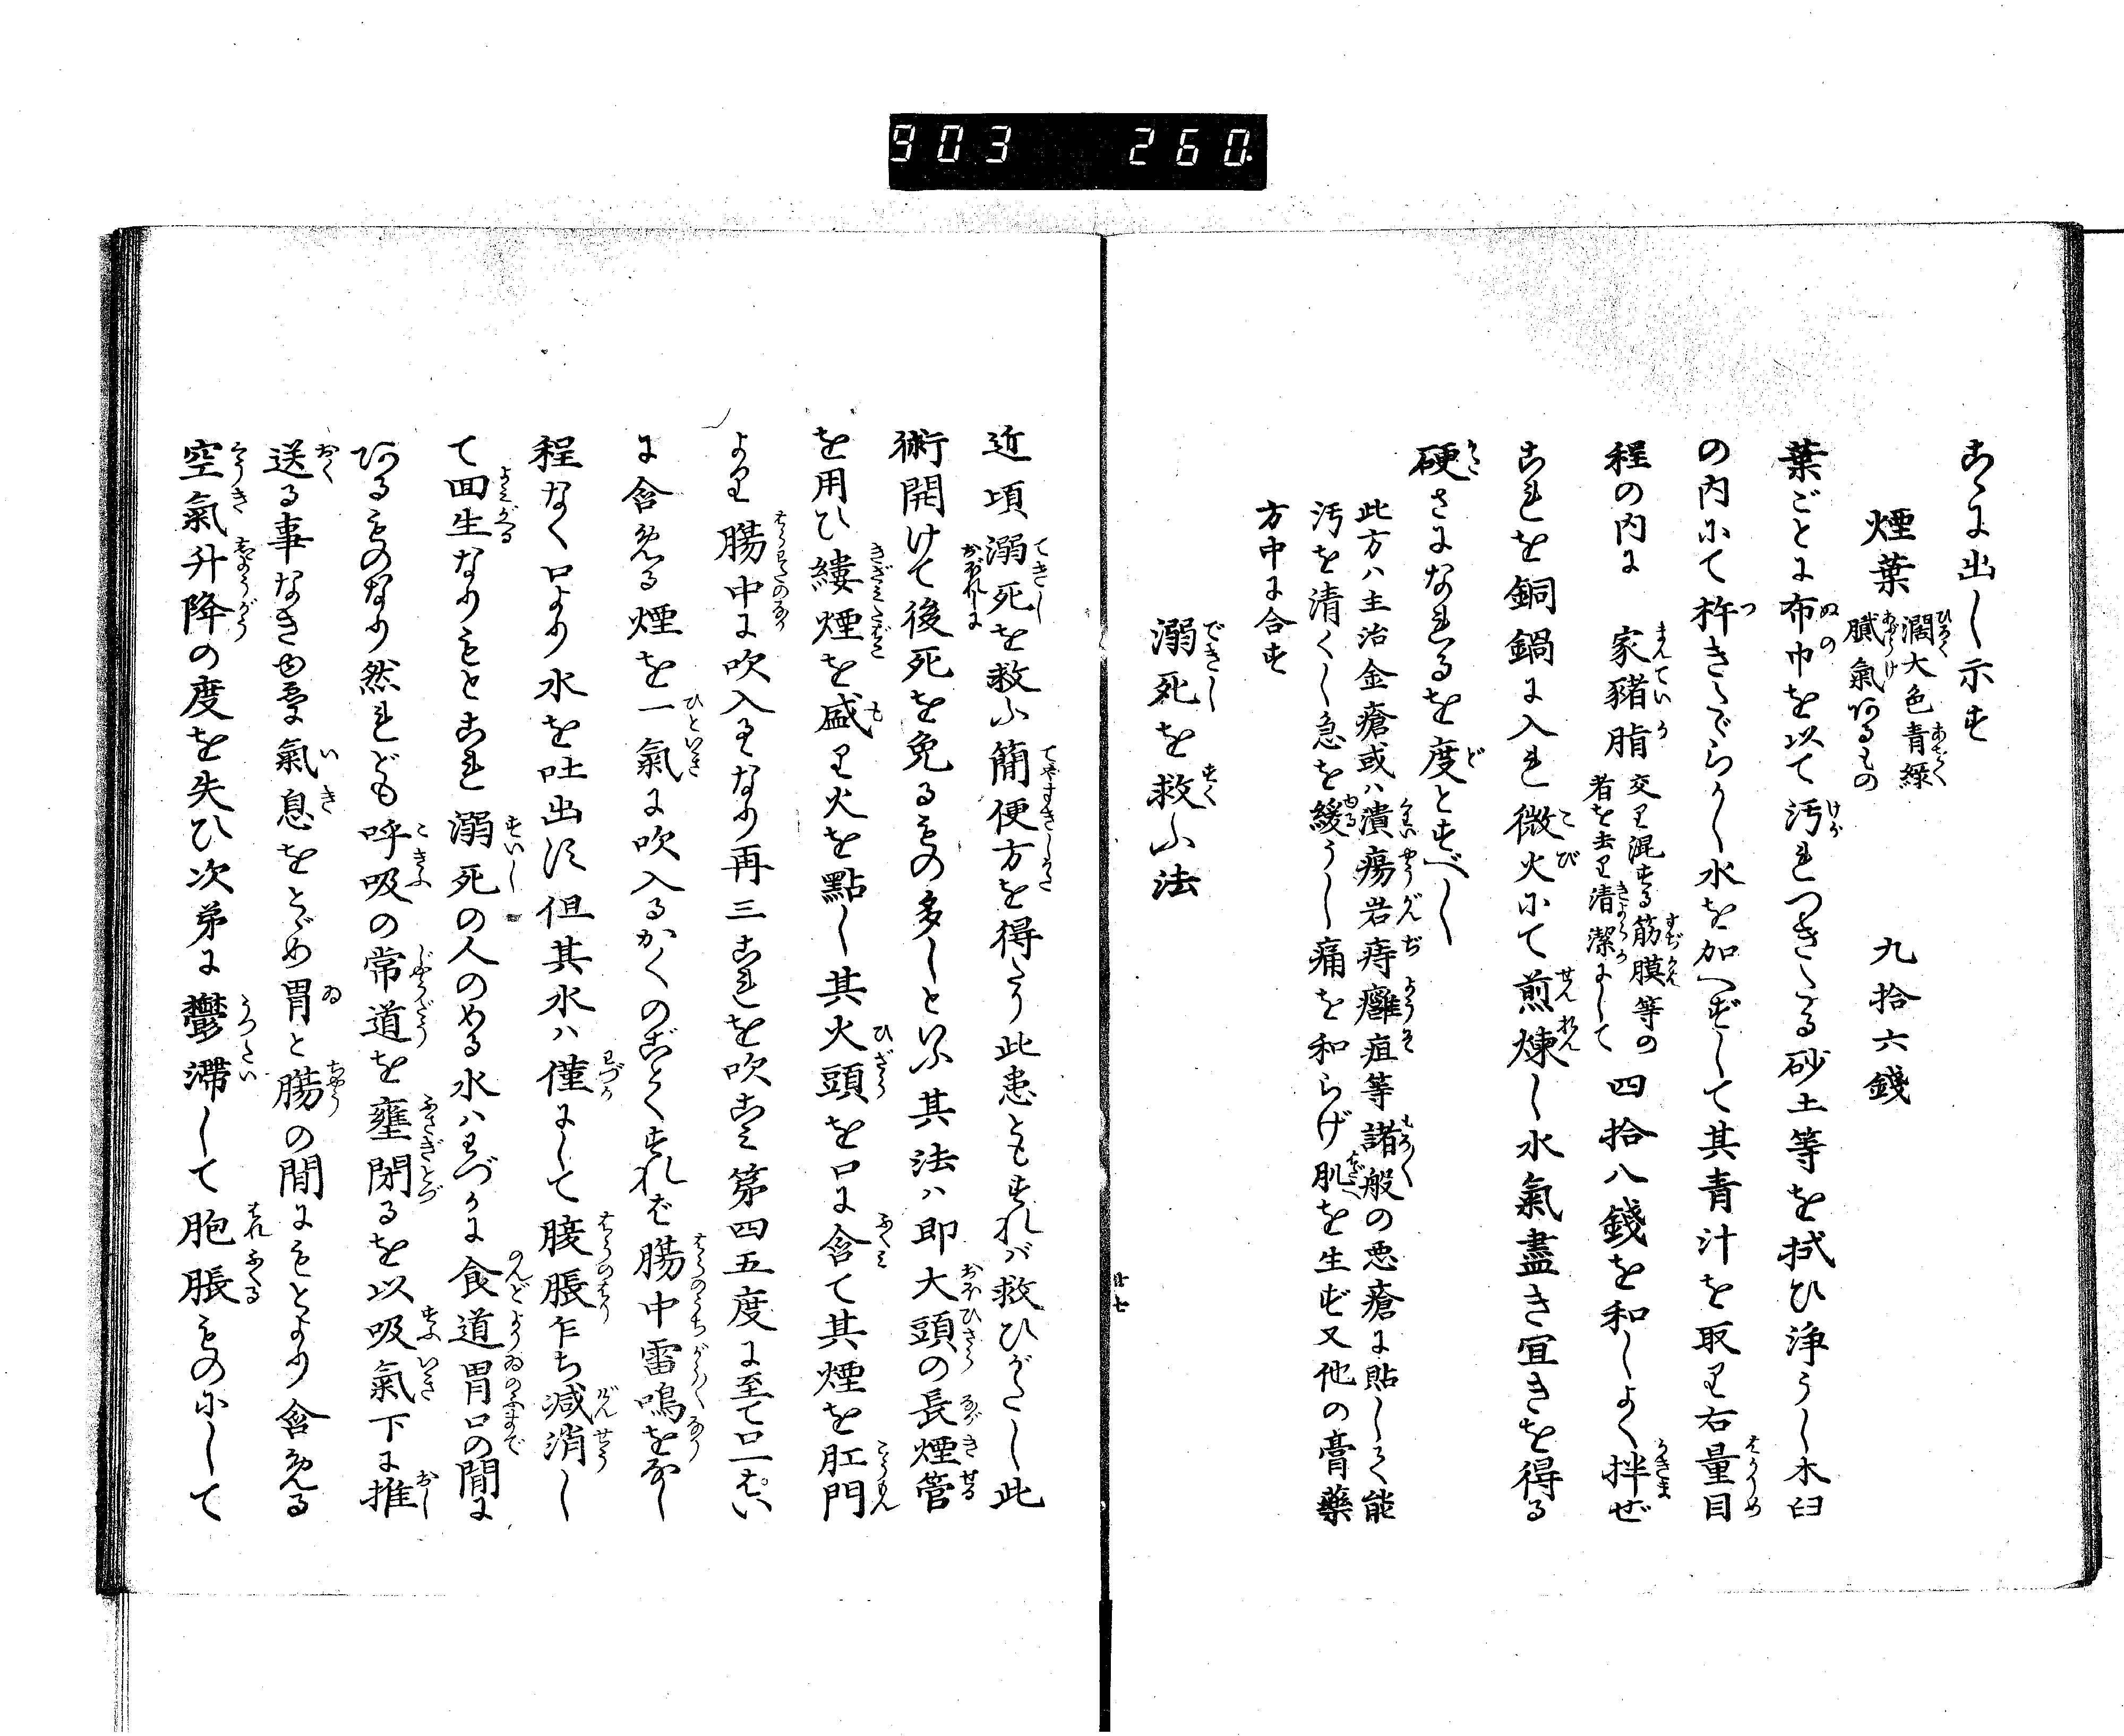 903 260.
こゝに出し示す
煙葉 濶大色青緑 膩氣あるもの 九拾六錢
葉ごとに布巾を以て汚れつきたる砂土等を拭ひ浄うし木臼
の内にて杵きたゞらかし水を加へずして其青汁を取り右量目
程の内に 家猪脂 交り混する筋膜等の者を去り清潔にして 四拾八錢を和しよく拌ぜ
これを銅鍋に入れ微火にて煎煉し水氣盡き宜きを得る
硬さになれるを度とすべし
此方ハ主治金瘡或ハ潰瘍岩痔癰疽等諸般の悪瘡に貼しよく能
汚を清くし急を緩うし痛を和らげ肌を生ず又他の膏藥
方中に合す
溺死を救ふ法
廿七
近頃溺死を救ふ簡便方を得たり此患ともすれバ救ひがたし此
術開けて後死を免るもの多しといふ其法ハ即大頭の長煙管
を用ひ縷煙を盛り火を點し其火頭を口に含て其煙を肛門
より腸中に吹入るなり再三これを吹こと第四五度に至て口一ぱい
に含める煙を一氣に吹入るかくのごとくすれば腸中雷鳴をなし
程なく口より水を吐出す但其水ハ僅にして腹脹乍ち減消し
て回生なりもとこれ溺死の人のめる水ハわづかに食道胃口の間に
あるものなり然れども呼吸の常道を壅閉るを以吸氣下に推
送る事なき由に氣息をとゞめ胃と腸の間にもとより含める
空氣升降の度を失ひ次第に鬱滞して胞脹ものにして